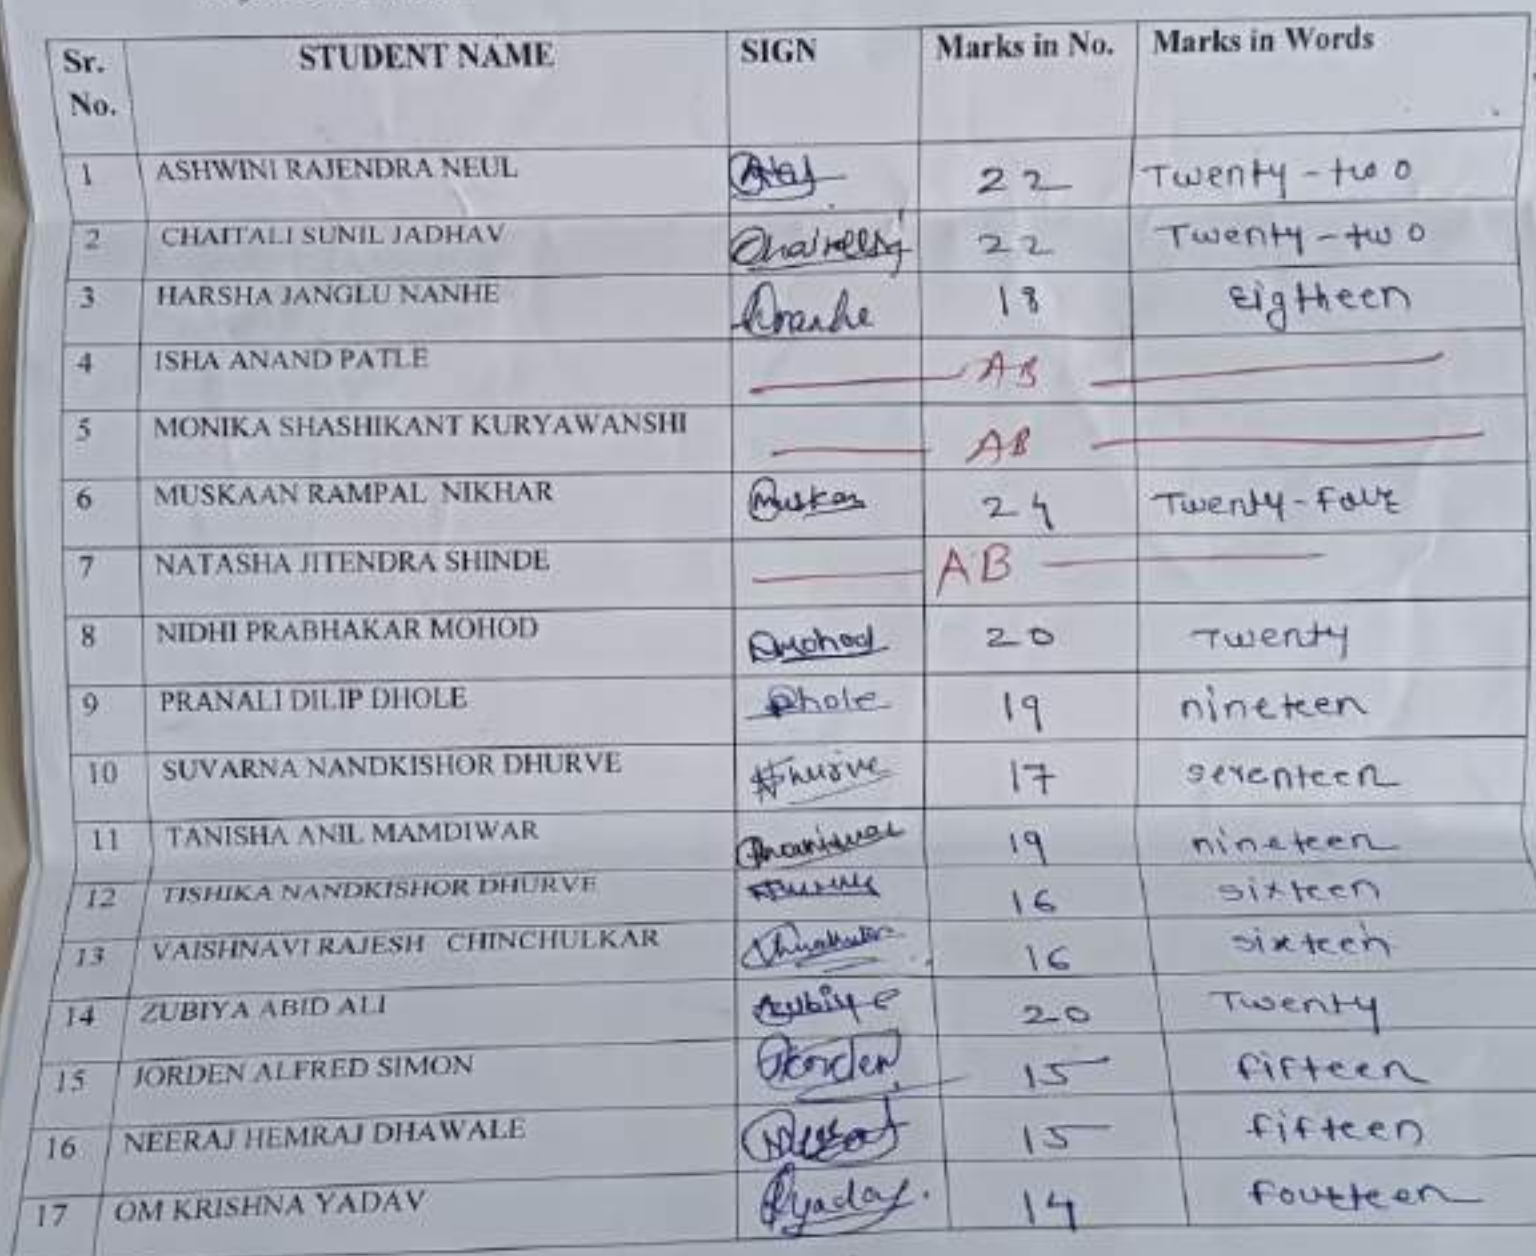 Sr. No. STUDENT NAME SIGN Marks in No. Marks in Words
1 ASHWINI RAJENDRA NEUL 22 Twenty-two
2 CHAITALI SUNIL JADHAV 22 Twenty-two
3 HARSHA JANGLU NANHE 18 Eigtheen
4 ISHA ANAND PATLE AB
5 MONIKA SHASHIKANT KURYAWANSHI AB
6 MUSKAAN RAMPAL NIKHAR Muskan 24 Twenty-four
7 NATASHA JITENDRA SHINDE AB
8 NIDHI PRABHAKAR MOHOD 20 Twenty
9 PRANALI DILIP DHOLE Dhole 19 nineteen
10 SUVARNA NANDKISHOR DHURVE 17 seventeen
11 TANISHA ANIL MAMDIWAR 19 nineteen
12 TISHIKA NANDKISHOR DHURVE 16 sixteen
13 VAISHNAVI RAJESH CHINCHULKAR 16 sixteen
14 ZUBIYA ABID ALI 20 Twenty
15 JORDEN ALFRED SIMON 15 fifteen
16 NEERAJ HEMRAJ DHAWALE 15 fifteen
17 OM KRISHNA YADAV 14 fourteen